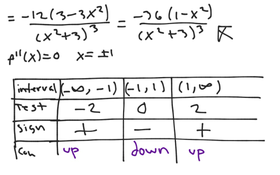 = -12(3-3x²)/(x²+3)³ = -36(1-x²)/(x²+3)³
p''(x)=0 x= ±1
interval (-∞, -1) (-1, 1) (1, ∞)
Test -2 0 2
Sign + - +
Con up down up